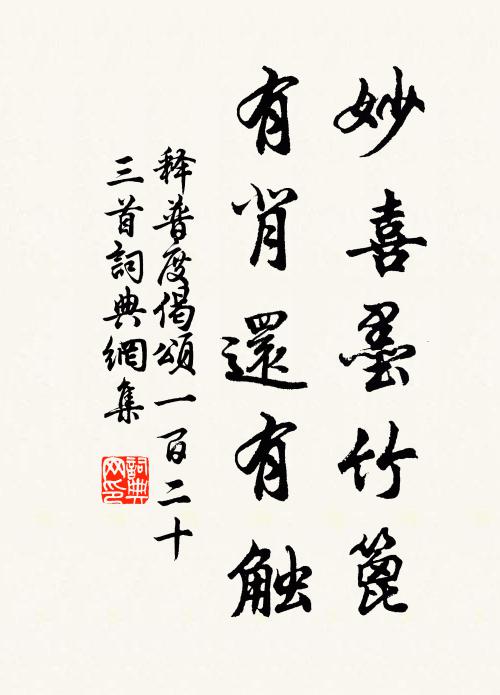 妙喜墨竹篦
有背還有触
释普度偈頌一百二十
三首詞典網集
詞典
网印